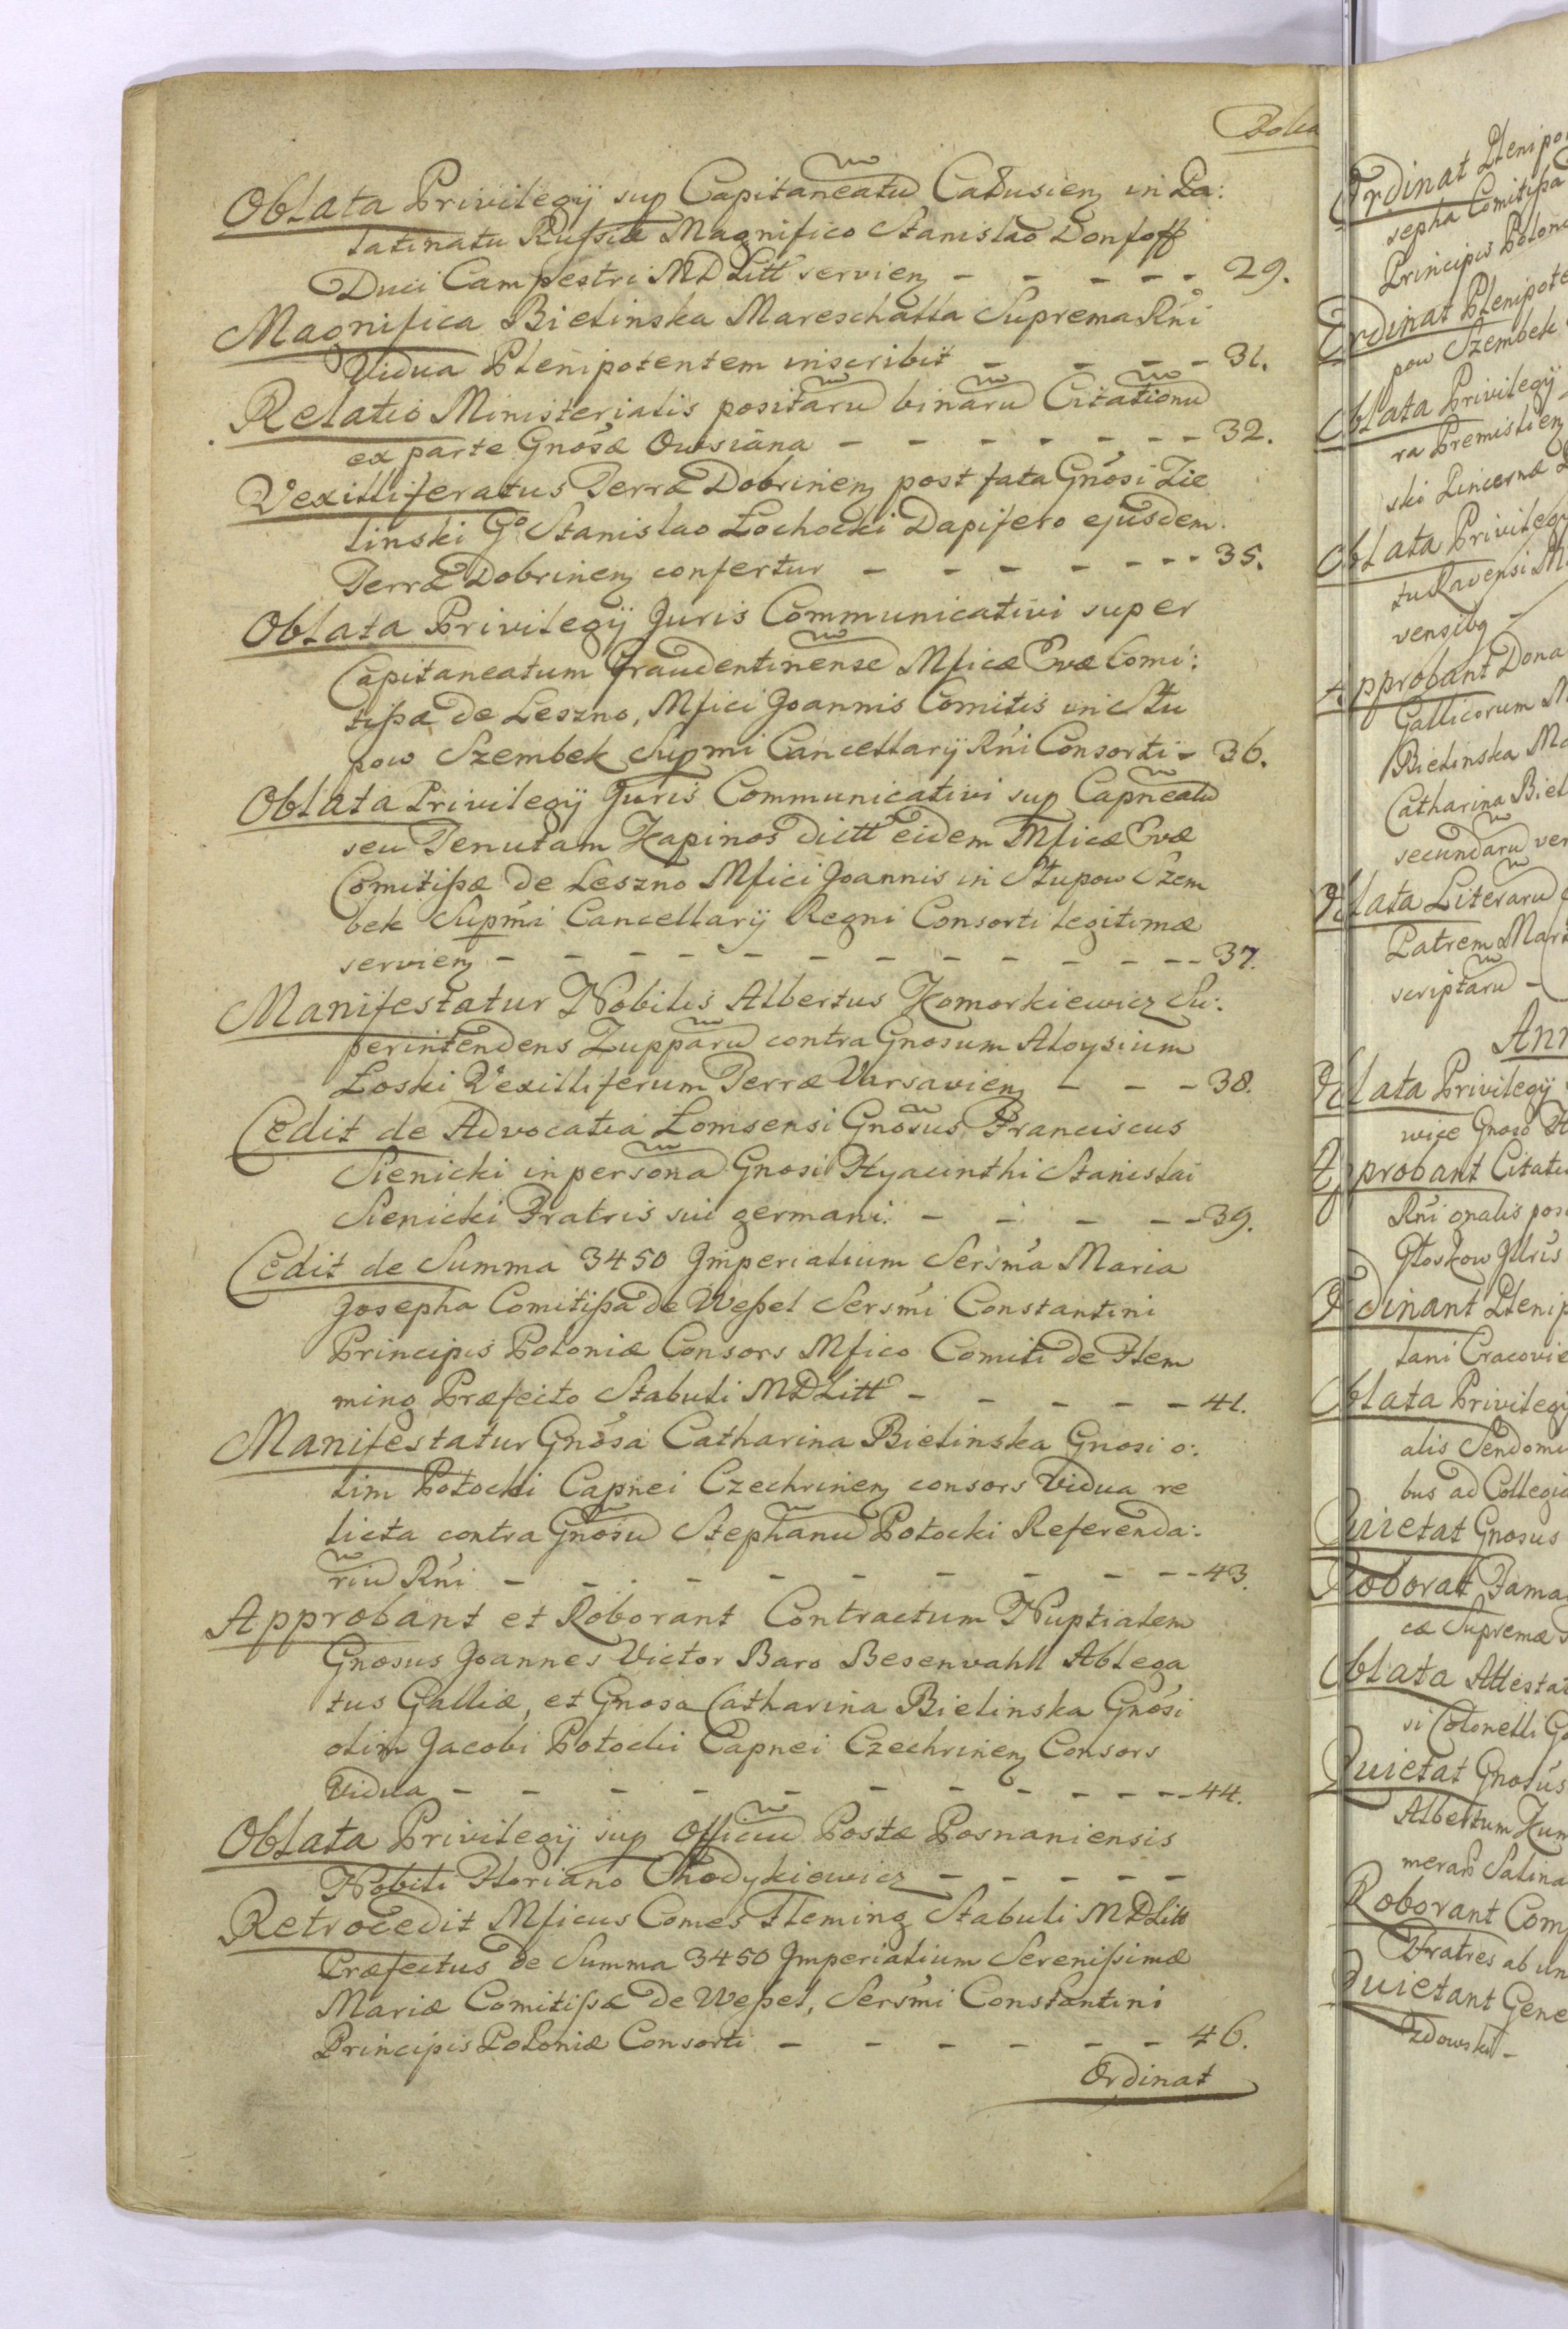 Folia
Oblata Privilegij sup Capitaneatu Calusien in Pa:
latinatu Russiæ Magnifico Stanislao Donhoff
Duci Campestri MDLitt servien - - - - - 29.
Magnifica Bielinska Mareschalla Suprema Rni
Vidua Plenipotentem inscribit - - - - 31.
Relatio Ministerialis positaru binaru Citationu
ex parte Gnosæ Owsiana - - - - - - - 32.
Vexilliferatus Terræ Dobrinen post fata Gnosi Zie
linski Go Stanislao Łochocki Dapifero ejusdem
Terræ Dobrinen confertur - - - - - - - 35.
Oblata Privilegij Juris Communicativi super
Capitaneatum Graudentinense Mficæ Evæ Comi:
tissa de Leszno, Mfici Joannis Comitis in Słu
pow Szembek Supmi Cancellarij Rni Consorti - 36.
Oblata Privilegij Juris Communicativi sup Capneatu
seu Tenutam Kapinos dictt eidem Mficæ Evæ
Comitissæ de Leszno Mfici Joannis in Słupow Szem
bek Supmi Cancellarij Regni Consorti legitimæ
servien - - - - - - - - - - - 37.
Manifestatur Nobilis Albertus Komorkiewicz Su:
perintendens Zupparu contra Gnosum Aloysium
Łoski Vexilliferum Terræ Varsavien - - - 38.
Cedit de Advocatia Łomsensi Gnosus Franciscus
Sienicki in persona Gnosi Hyacinthi Stanislai
Sienicki Fratris sui germani. - - - - - 39.
Cedit de Summa 3450 Imperialium Sersma Maria
Josepha Comitissa de Wessel Sersmi Constantini
Principis Poloniæ Consors Mfico Comiti de Flem
ming Præfecto Stabuli MDLitt - - - - - 41.
Manifestatur Gnosa Catharina Bielinska Gnosi o:
lim Potocki Capnei Czechrinen consors Vidua re
licta contra Gnosu Stephanu Potocki Referenda:
riu Rni - - - - - - - - - - 43.
Approbant et Roborant Contractum Nuptialem
Gnosus Joannes Victor Baro Besenvahll Ablega
tus Galliæ, et Gnosa Catharina Bielinska Gnosi
olim Jacobi Potocki Capnei Czechrinen Consors
Vidua - - - - - - - - - - - 44.
Oblata Privilegij sup Officiu Postæ Posnaniensis
Nobili Floriano Chodykiewicz - - - - -
Retrocedit Mficus Comes Fleming Stabuli MDLitt
Præfectus de Summa 3450 Imperialium Serenissimæ
Mariæ Comitissæ de Wessel, Sersmi Constantini
Principis Poloniæ Consorti - - - - - - 46.
Ordinat
Ordinat
sepha Comitissa
Principis Polon
Ordinat
pow Szembek
Oblata Privilegij
ra Premislien
ski Pincernæ
Oblata Privilegij
tu Ravensi
vensibq
Approbant Dona
Gallicorum M
Bielinska Ma
Catharina Biel
secundaru ver
Oblata Literaru
Patrem Mari
scriptaru -
Ann
Oblata Privilegij
wice Gnoso
Approbant Citati
Rni gnalis pos
Ordinant Plenip
lani Cracovie
Oblata Privilegij
alis Sendomi
bus ad Collegia
Quietat Gnosus
Roborat Fama
cæ Supremæ
Oblata Attestat
si Colonelli
Quietat Gnosus
Albertum
meraris Salina
Roborant Com
Fratres ab un
Quietant Gene
zdowski -